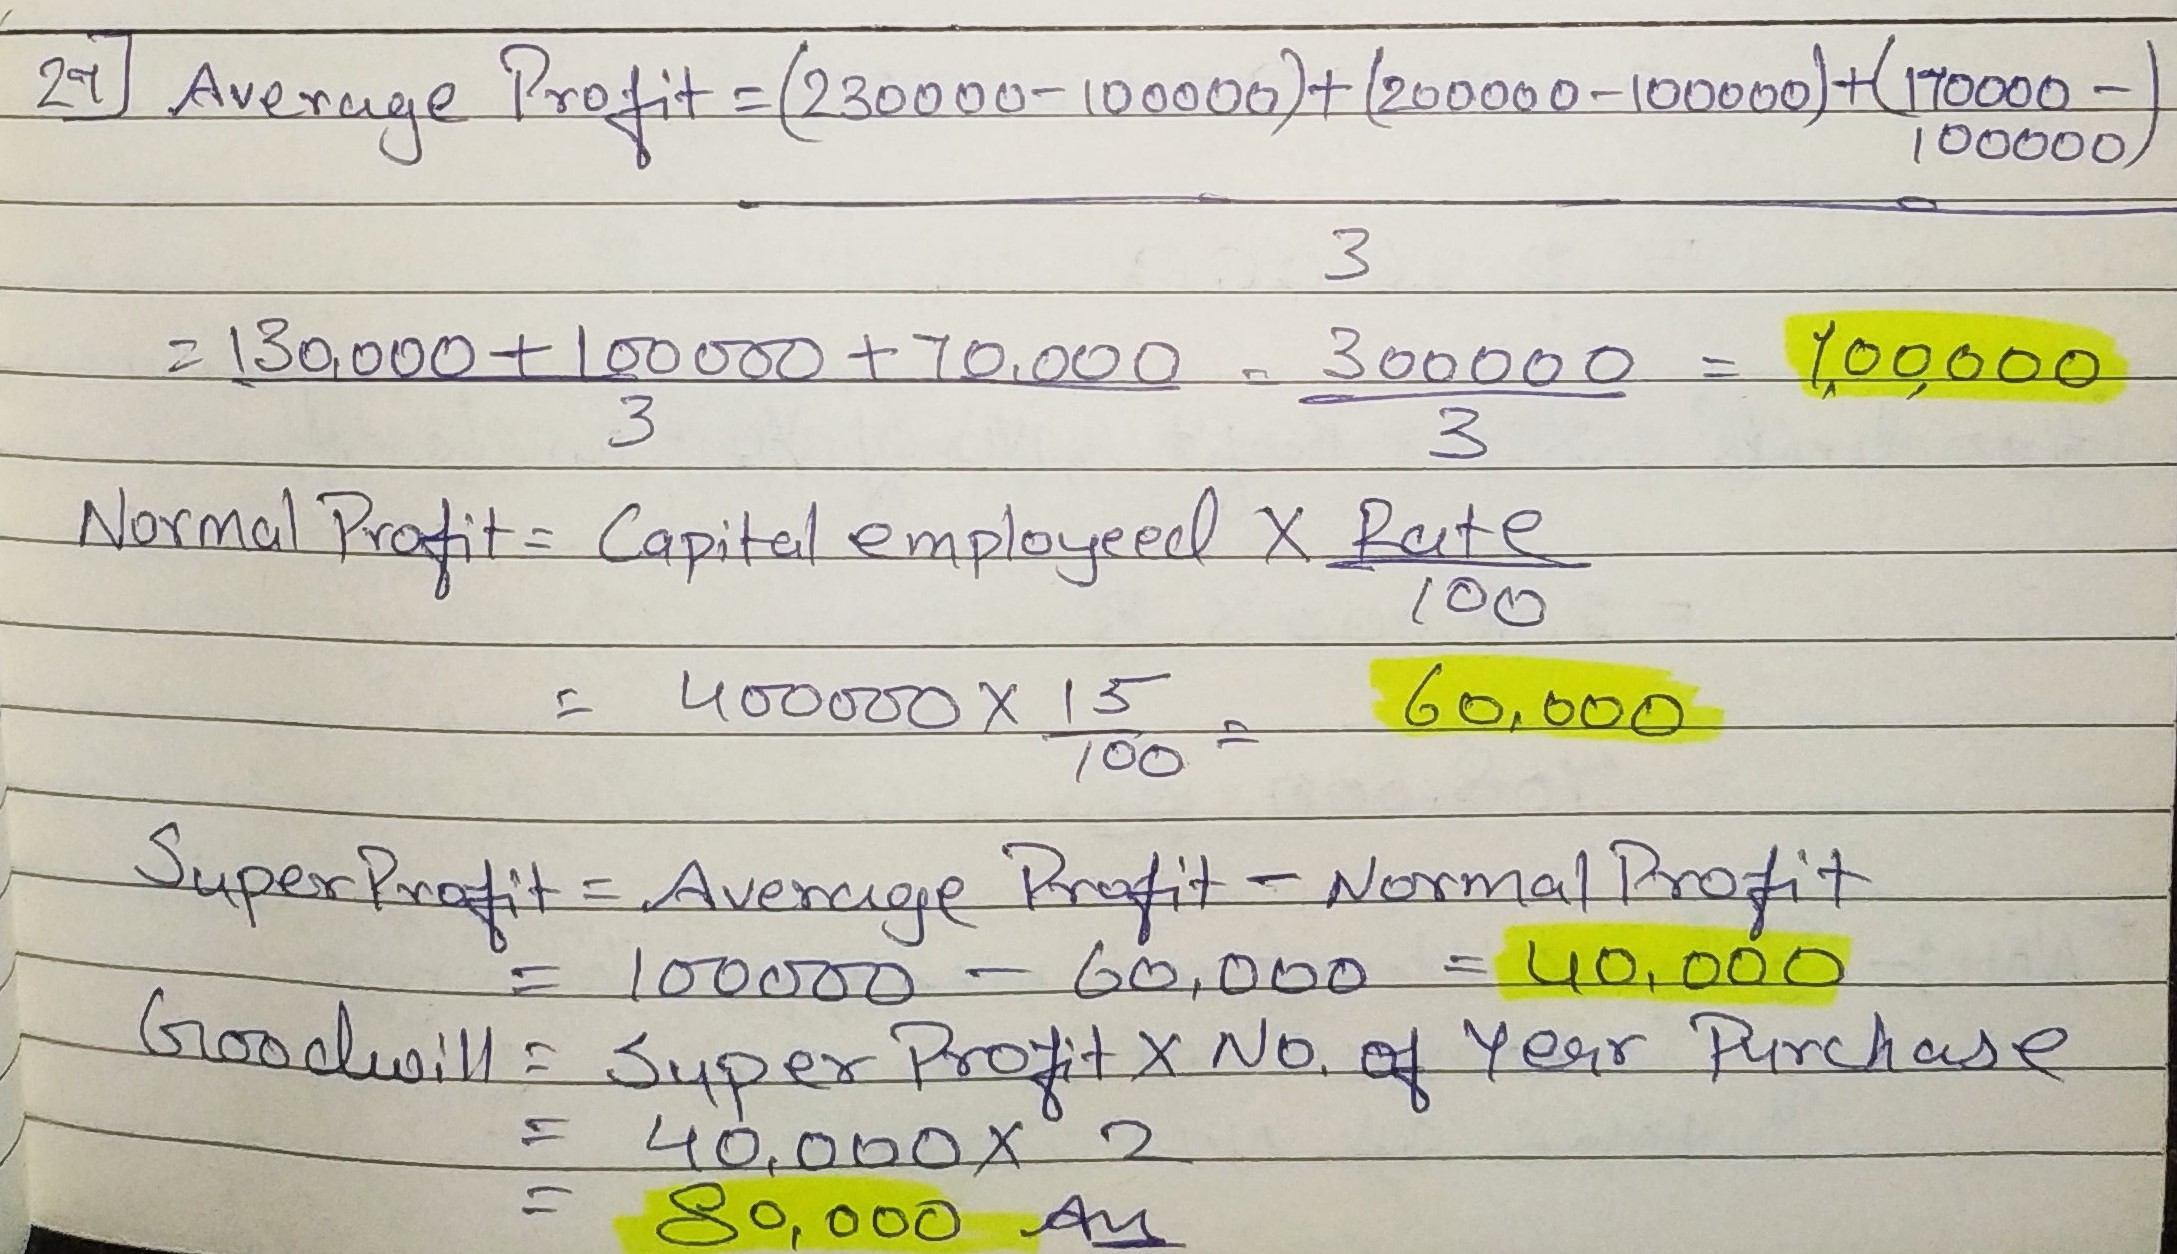 27] Average Profit = (230000-100000)+(200000-100000)+(170000-
100000)
3
= 130,000+100000+70,000 = 300000 = 1,00,000
3 3
Normal Profit = Capital employeed X Rate
100
= 400000 X 15 = 60,000
100
Super Profit = Average Profit - Normal Profit
= 100000 - 60,000 = 40,000
Goodwill = Super Profit X No. of Year Purchase
= 40,000 X 2
= 80,000 Ans